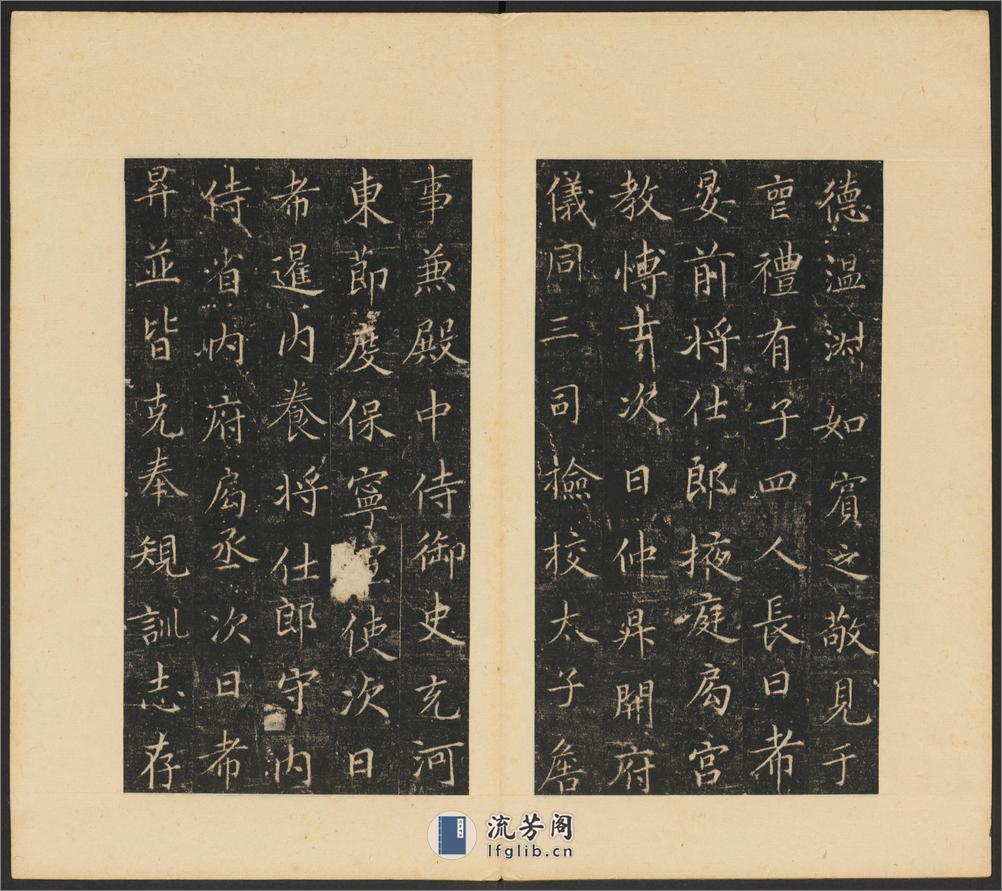 德温淵如賓之敬見于
亶禮有子四人長曰希
晏前將仕郎掖庭局宮
教博士次曰仲昇開府
儀同三司檢挍太子詹
事兼殿中侍御史充河
東節度保寧軍使次曰
希暹內養將仕郎守內
侍省內府局丞次曰希
昇並皆克奉規訓志存
流芳阁
lfglib.cn